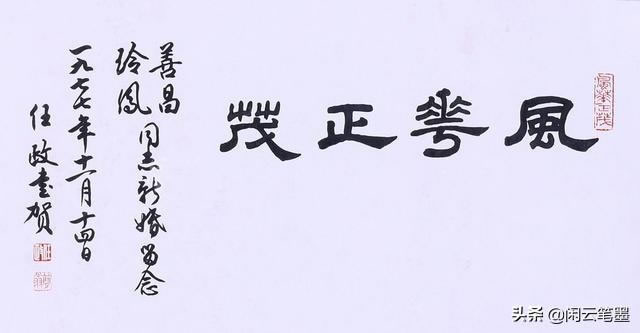 風華正茂
善昌
玲鳳
同志新婚留念
一九七七年十一月十四日
任政書賀
風華正茂
头条 @闲云笔墨